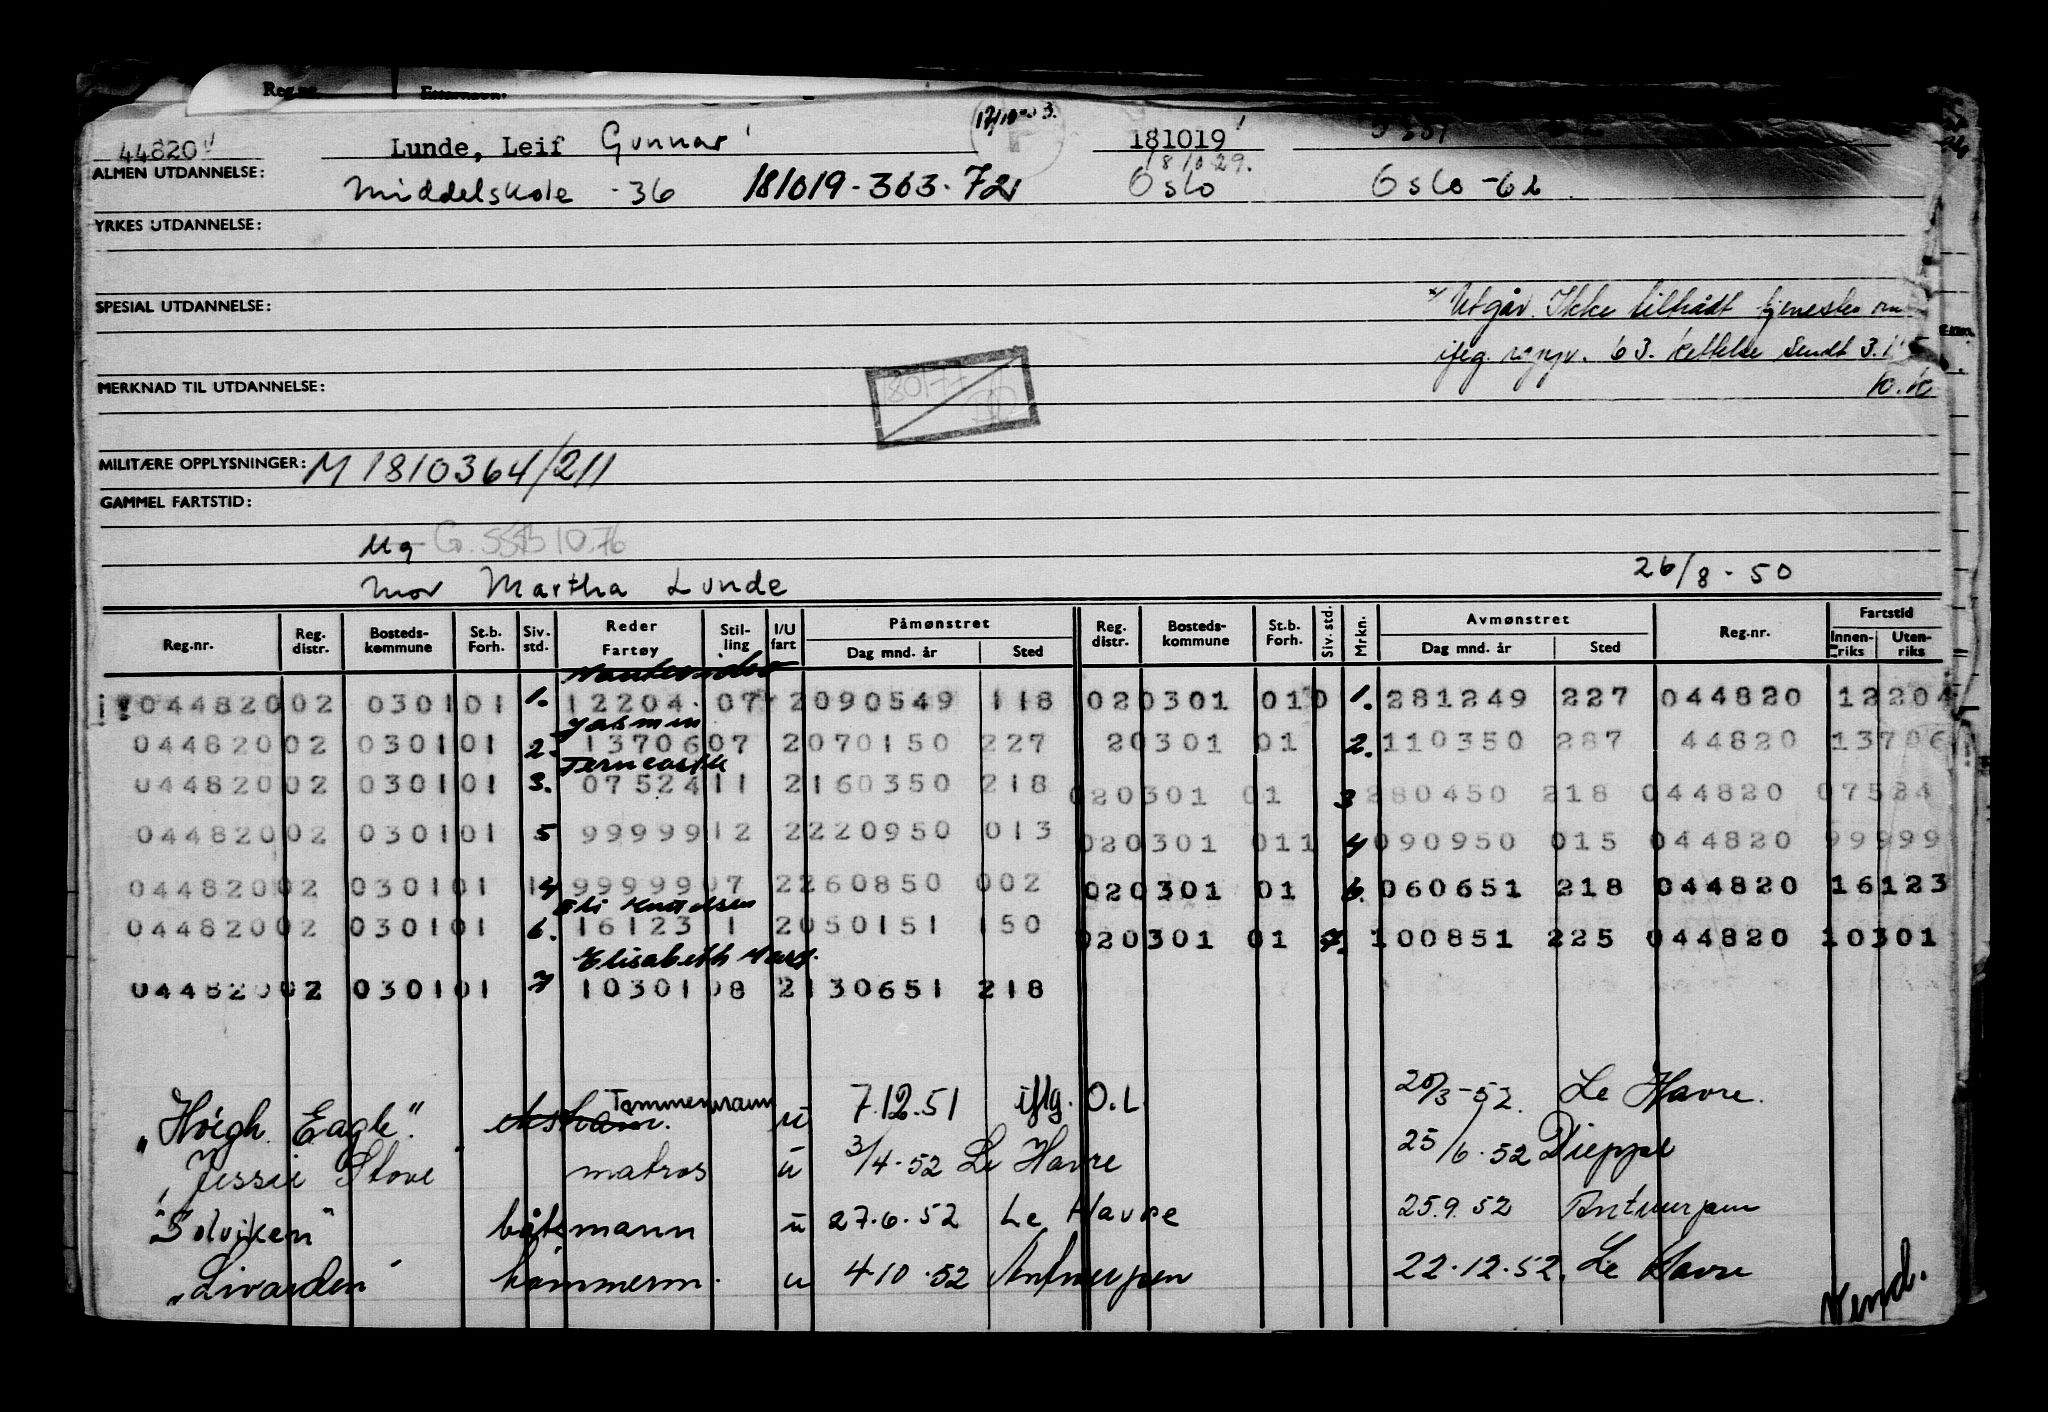 Reg.nr. Etternavn.
44820 Lunde, Leif Gunnar 181019
181029.
ALMEN UTDANNELSE: Middelskole -36 181019-363.72 Oslo Oslo -62
YRKES UTDANNELSE:
SPESIAL UTDANNELSE: Utgår. Ikke tiltrådt tjeneste
63. Rettelse sendt
MERKNAD TIL UTDANNELSE:
MILITÆRE OPPLYSNINGER: M 1810364/211
GAMMEL FARTSTID:
Ug
Mor Martha Lunde 26/8-50
Reg.nr. Reg. distr. Bosteds-kommune St.b. Forh. Siv. std. Reder Fartøy Stil-ling I/U fart Påmønstret Dag mnd. år Sted Reg. distr. Bosteds-kommune St.b. Forh. Siv. std. Mrkn. Avmønstret Dag mnd. år Sted Reg.nr. Fartstid Innen-riks Uten-riks
044820 02 0301 01 1. 12204 07 2 090549 118 02 0301 01 0 1. 281249 227 044820 12204
Jasmin
044820 02 0301 01 2. 13706 07 2 070150 227 2 0301 01 2. 110350 287 44820 13706
Terncastle
044820 02 0301 01 3. 07524 11 2 160350 218 02 0301 01 3 280450 218 044820 07524
044820 02 0301 01 5 99999 12 2 220950 013 02 0301 01 1 4 090950 015 044820 99999
044820 02 0301 01 1 4 99999 07 2 260850 002 02 0301 01 6. 060651 218 044820 16123
Eli Knudsen
044820 02 0301 01 6. 16123 11 2 050151 150 02 0301 01 7. 100851 225 044820 10301
Elisabeth
044820 02 0301 01 7 10301 08 2 130651 218
„Höegh Eagle" Tømmermann u 7.12.51 iflg. O.L. 20/3-52. Le Havre.
„Jessie Stove" matros u 3/4-52 Le Havre 25/6-52 Dieppe
"Solviken" båtsmann u 27.6.52 Le Havre 25.9.52 Antwerpen
„Livarden" tømmerm. u 4.10.52 Antwerpen 22.12.52. Le Havre
Vend.